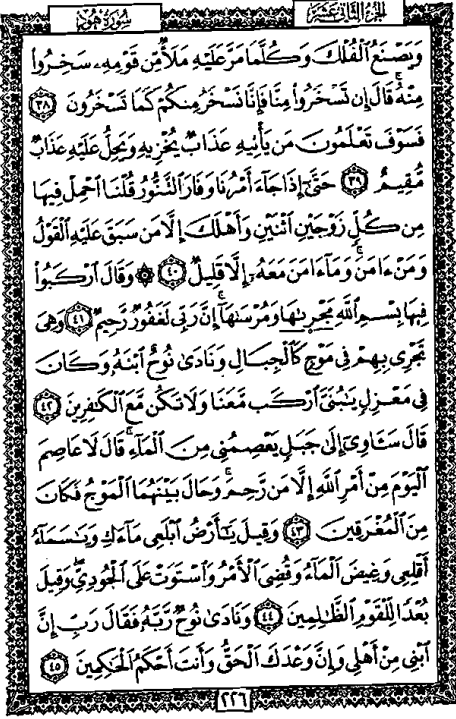 الجزء الثاني عشر
سورة هود
وَيَصْنَعُ ٱلْفُلْكَ وَكُلَّمَا مَرَّ عَلَيْهِ مَلَأٌ مِّن قَوْمِهِۦ سَخِرُوا۟
مِنْهُ ۚ قَالَ إِن تَسْخَرُوا۟ مِنَّا فَإِنَّا نَسْخَرُ مِنكُمْ كَمَا تَسْخَرُونَ ٣٨
فَسَوْفَ تَعْلَمُونَ مَن يَأْتِيهِ عَذَابٌ يُخْزِيهِ وَيَحِلُّ عَلَيْهِ عَذَابٌ
مُّقِيمٌ ٣٩ حَتَّىٰٓ إِذَا جَآءَ أَمْرُنَا وَفَارَ ٱلتَّنُّورُ قُلْنَا ٱحْمِلْ فِيهَا
مِن كُلٍّ زَوْجَيْنِ ٱثْنَيْنِ وَأَهْلَكَ إِلَّا مَن سَبَقَ عَلَيْهِ ٱلْقَوْلُ
وَمَنْ ءَامَنَ ۚ وَمَآ ءَامَنَ مَعَهُۥٓ إِلَّا قَلِيلٌ ٤٠ ۞ وَقَالَ ٱرْكَبُوا۟
فِيهَا بِسْمِ ٱللَّهِ مَجْر۪ىٰهَا وَمُرْسَىٰهَآ ۚ إِنَّ رَبِّى لَغَفُورٌ رَّحِيمٌ ٤١ وَهِىَ
تَجْرِى بِهِمْ فِى مَوْجٍ كَٱلْجِبَالِ وَنَادَىٰ نُوحٌ ٱبْنَهُۥ وَكَانَ
فِى مَعْزِلٍ يَٰبُنَىَّ ٱرْكَب مَّعَنَا وَلَا تَكُن مَّعَ ٱلْكَٰفِرِينَ ٤٢
قَالَ سَـَٔاوِىٓ إِلَىٰ جَبَلٍ يَعْصِمُنِى مِنَ ٱلْمَآءِ ۚ قَالَ لَا عَاصِمَ
ٱلْيَوْمَ مِنْ أَمْرِ ٱللَّهِ إِلَّا مَن رَّحِمَ ۚ وَحَالَ بَيْنَهُمَا ٱلْمَوْجُ فَكَانَ
مِنَ ٱلْمُغْرَقِينَ ٤٣ وَقِيلَ يَٰٓأَرْضُ ٱبْلَعِى مَآءَكِ وَيَٰسَمَآءُ
أَقْلِعِى وَغِيضَ ٱلْمَآءُ وَقُضِىَ ٱلْأَمْرُ وَٱسْتَوَتْ عَلَى ٱلْجُودِىِّ ۖ وَقِيلَ
بُعْدًا لِّلْقَوْمِ ٱلظَّٰلِمِينَ ٤٤ وَنَادَىٰ نُوحٌ رَّبَّهُۥ فَقَالَ رَبِّ إِنَّ
ٱبْنِى مِنْ أَهْلِى وَإِنَّ وَعْدَكَ ٱلْحَقُّ وَأَنتَ أَحْكَمُ ٱلْحَٰكِمِينَ ٤٥
٢٢٦